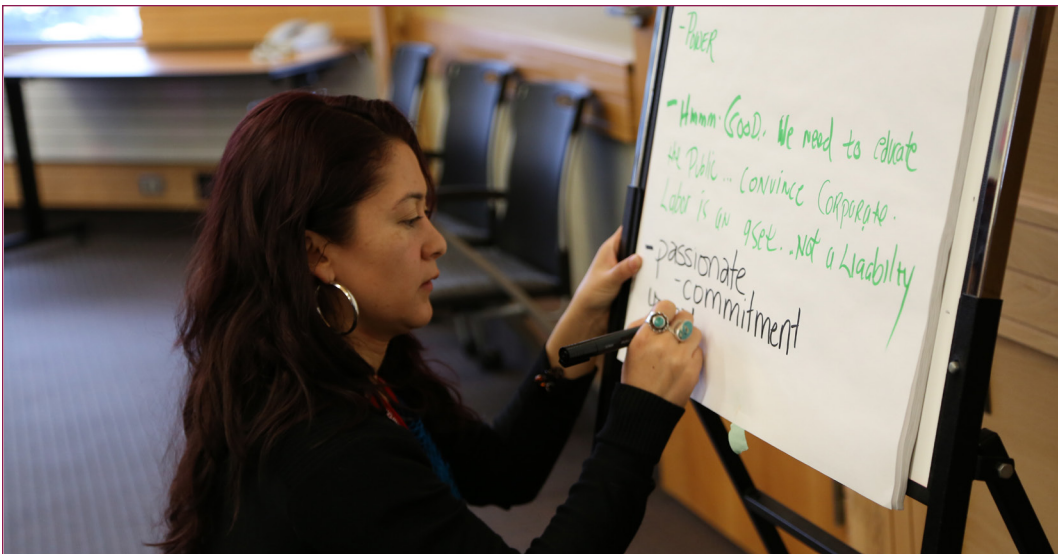 -Power
-Hmmm. Good. We need to educate
the Public... convince Corporate.
Labor is an aset... Not a Liability
-passionate
-commitment